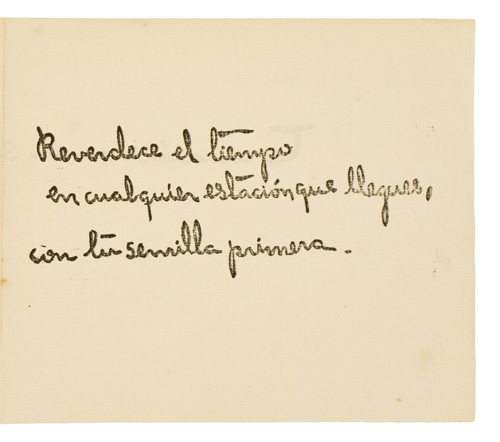 Reverdece el tiempo
en cualquier estación que llegues,
con tu semilla primera.